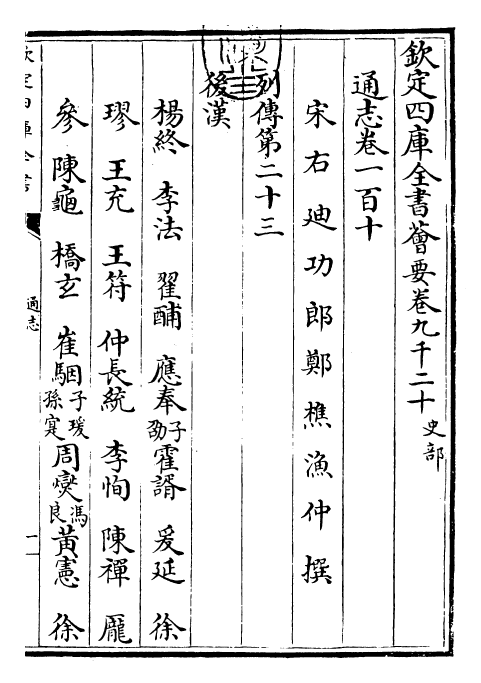 欽定四庫全書薈要卷九千二十 史部
通志卷一百十
宋右迪功郎鄭樵漁仲撰
列傳第二十三
後漢
楊終 李法 翟酺 應奉子劭 霍諝 爰延 徐
璆 王充 王符 仲長統 李恂 陳禪 龎
參 陳龜 橋玄 崔駰子瑗孫寔 周燮馮良 黃憲 徐
欽定四庫全書
通志
一